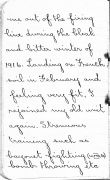 me out of the firing
line during the bleak
and bitter winter of
1916. Landing in French
soil in February and
feeling very fit, I
rejoined my old unit
again. Strenuous
training such as
bayonet-fighting
bomb-throwing etc